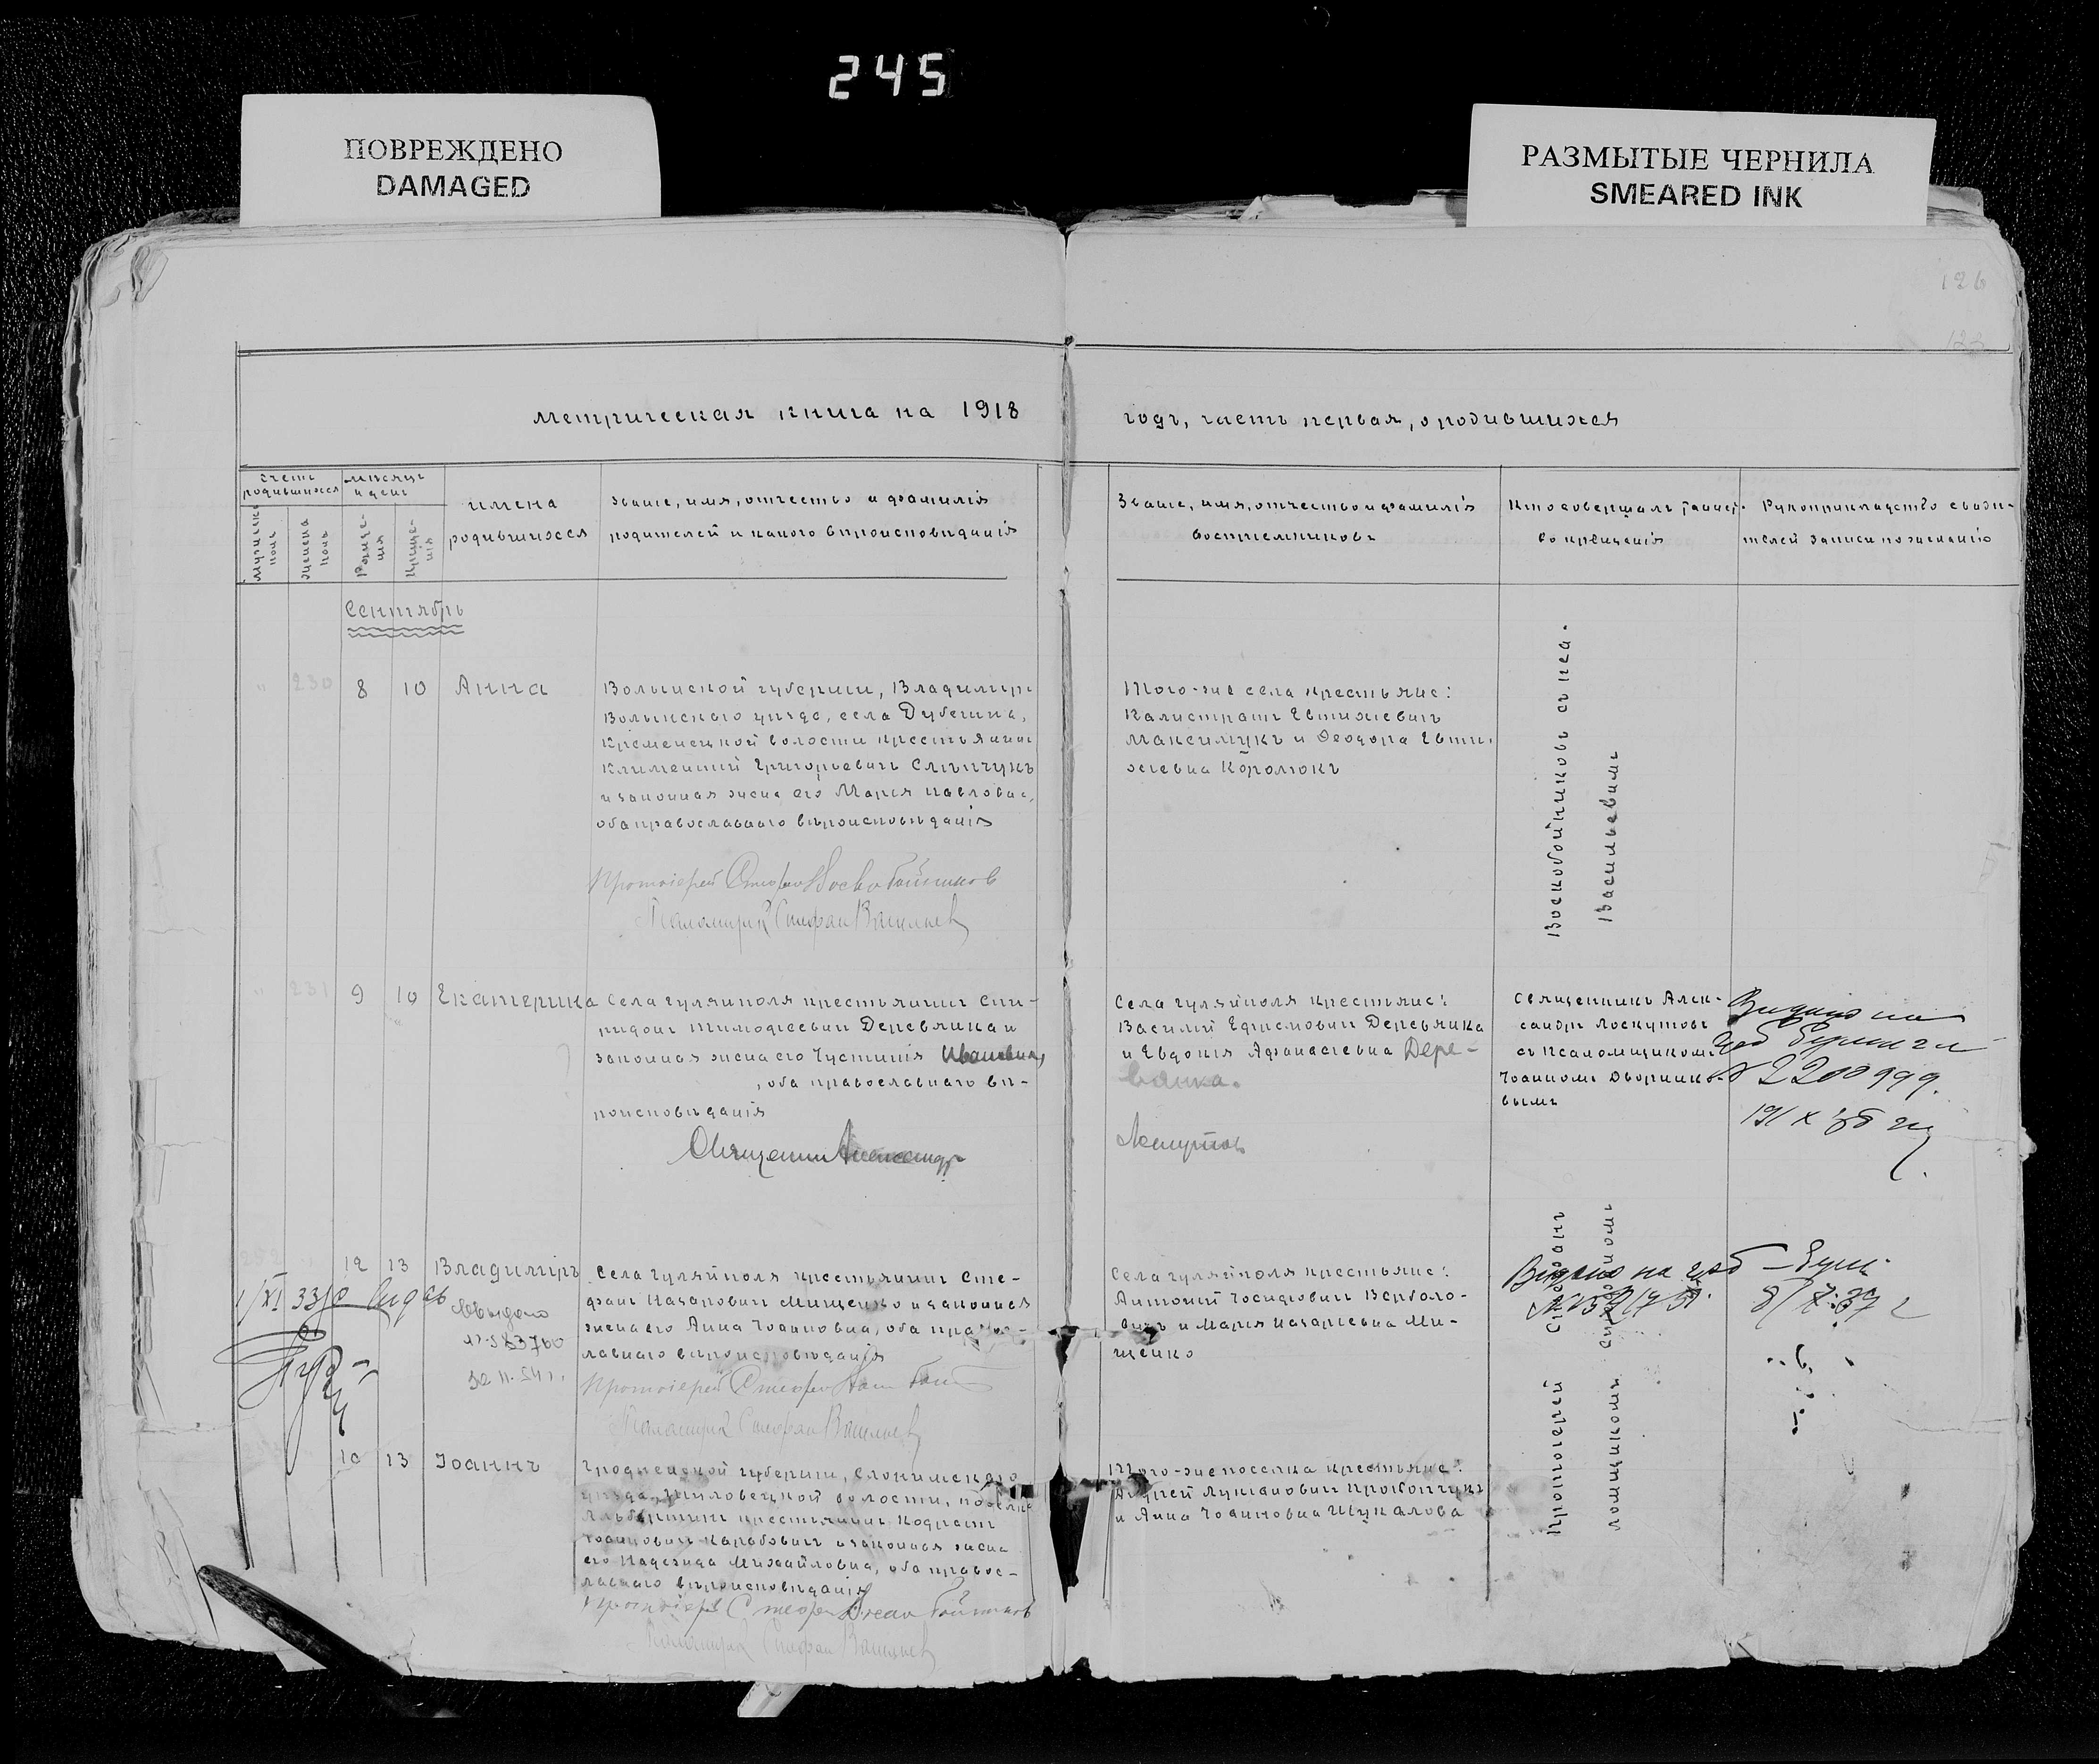 245
ПОВРЕЖДЕНО
DAMAGED
РАЗМЫТЫЕ ЧЕРНИЛА
SMEARED INK
126
метрическая книга на 1918
годъ, часть первая, о родившихся
счетъ
родившихся
мѣсяцъ
и день
мужеска
полъ
женска
полъ
Рожде-
нія
Креще-
нія
имена
родившихся
Званіе, имя, отчество и фамилія
родителей и какого вѣроисповѣданія
Званіе, имя, отчество и фамилія
воспріемниковъ
Кто совершалъ таинст-
во крещенія
Рукоприкладство свидѣ-
телей записи по желанію
Сентябрь
" 230 8 10 Анна
Волынской губерніи, Владиміръ
Волынскаго уѣзда, села
волости крестьянинъ
Климентій Григорьевичъ
и законная жена его Марія Павловна,
оба православнаго вѣроисповѣданія
Протоіерей Стефанъ Воскобойниковъ
Псаломщикъ Стефанъ Васильевъ
Того-же села крестьяне:
Калистратъ Евтихіевичъ
Максимукъ и Ѳеодора Евти-
хіевна Королюкъ
Воскобойниковъ съ пса-
Васильевымъ
" 231 9 10 Екатерина
Села Гуляйполя крестьянинъ Спи-
ридонъ Тимофеевичъ Деревянка и
законная жена его Іустинія Ивановна,
, оба православнаго вѣ-
роисповѣданія
Священникъ Александръ
Села Гуляйполя крестьяне:
Василій Ефимовичъ Деревянка
и Евдокія Афанасіевна Дере-
вянка.
Лоскутовъ
Священникъ Алек-
сандръ Лоскутовъ
съ псаломщикомъ
Іоанномъ Дворнико-
вымъ
2200999.
12 13 Владиміръ
Села Гуляйполя крестьянинъ Сте-
фанъ Назаровичъ Мищенко и законная
жена его Анна Іоанновна, оба правос-
лавнаго вѣроисповѣданія
Протоіерей Стефанъ
Псаломщикъ Стефанъ Васильевъ
Села Гуляйполя крестьяне:
Антоній Іосифовичъ
и Марія Назаріевна Ми-
щенко
Протоіерей Стефанъ
ломщикомъ Стефаномъ
10 13 Іоаннъ
Гродненской губерніи, Слонимскаго
уѣзда, волости, поселка
Альбертинъ крестьянинъ Кодратъ
Іоанновичъ Карабовичъ и законная жена
его Надежда Михайловна, оба правос-
лавнаго вѣроисповѣданія
Протоіерей Стефанъ Воскобойниковъ
Псаломщикъ Стефанъ Васильевъ
Того-же поселка крестьяне:
Андрей Лукіановичъ Прокопчукъ
и Анна Іоанновна Шукалова